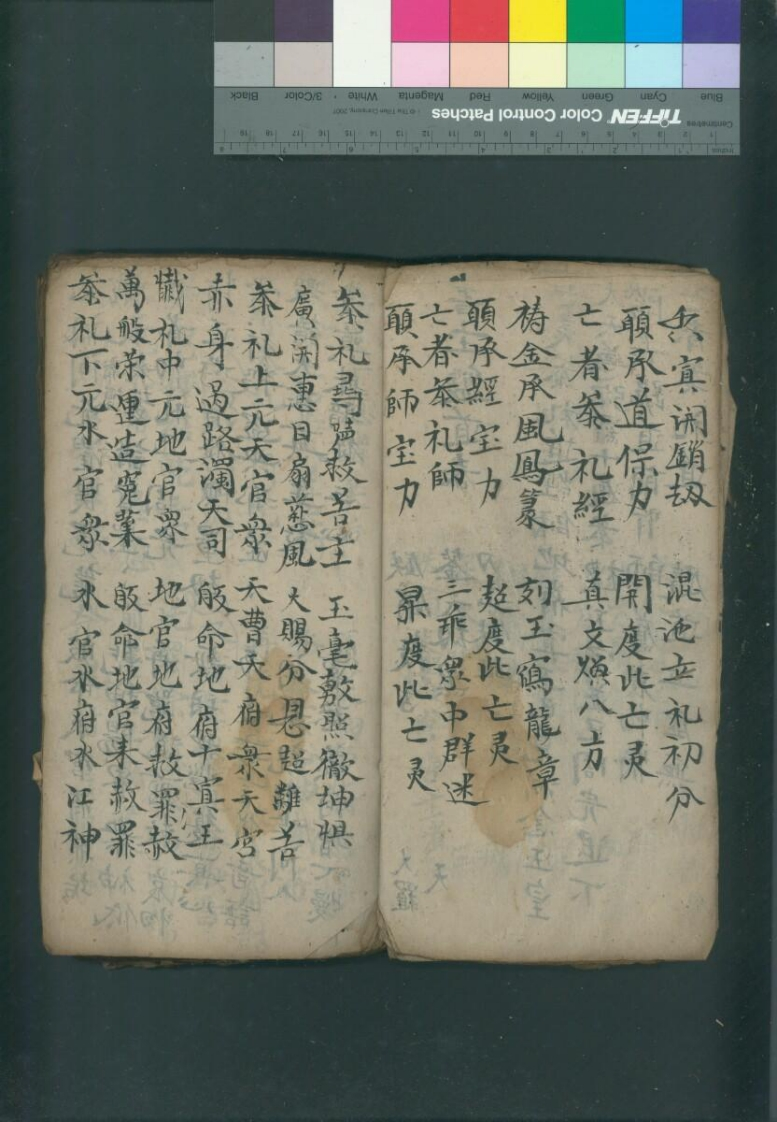 寘開銷劫 混池立礼初分
願承道保力 開度此亡灵
亡者叅礼經 真文煥八方
梼金承風鳳篆 刻玉寫龍章
願承經宝力 超度此亡灵
亡者叅礼師 三乖衆中群迷
願承師宝力 昇度此亡灵
叅礼尋声救苦主 玉毫敷照徹坤惧
廣開惠目扇慈風 大賜分恩超離苦
叅礼上元天官衆 天曹天府衆天宮
赤身過路濁天司 皈命地府十寘王
懺礼中元地官衆 地官地府救罪赦
萬般荣運造冤業 皈命地官来赦罪
叅礼下元水官衆 水官水府水江神
TIFFEN Color Control Patches
© The Tiffen Company, 2007
Centimetres
Inches
Blue Cyan Green Yellow Red Magenta White 3/Color Black